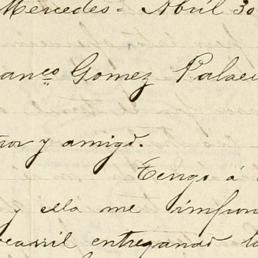 Mercedes. Abril 30
anco Gomez Palac
ñor y amigo.
Tengo á
y ella me impon
ocarril entregando l